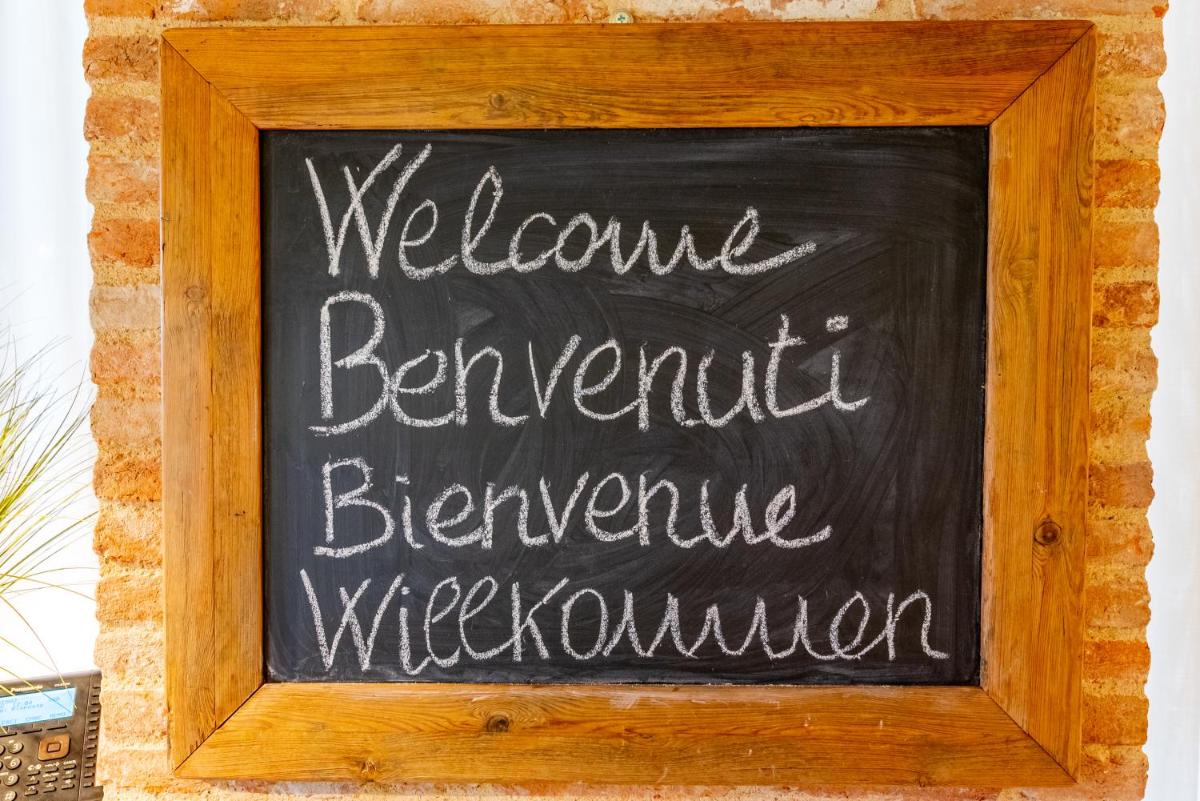 Welcome
Benvenuti
Bienvenue
Willkommen